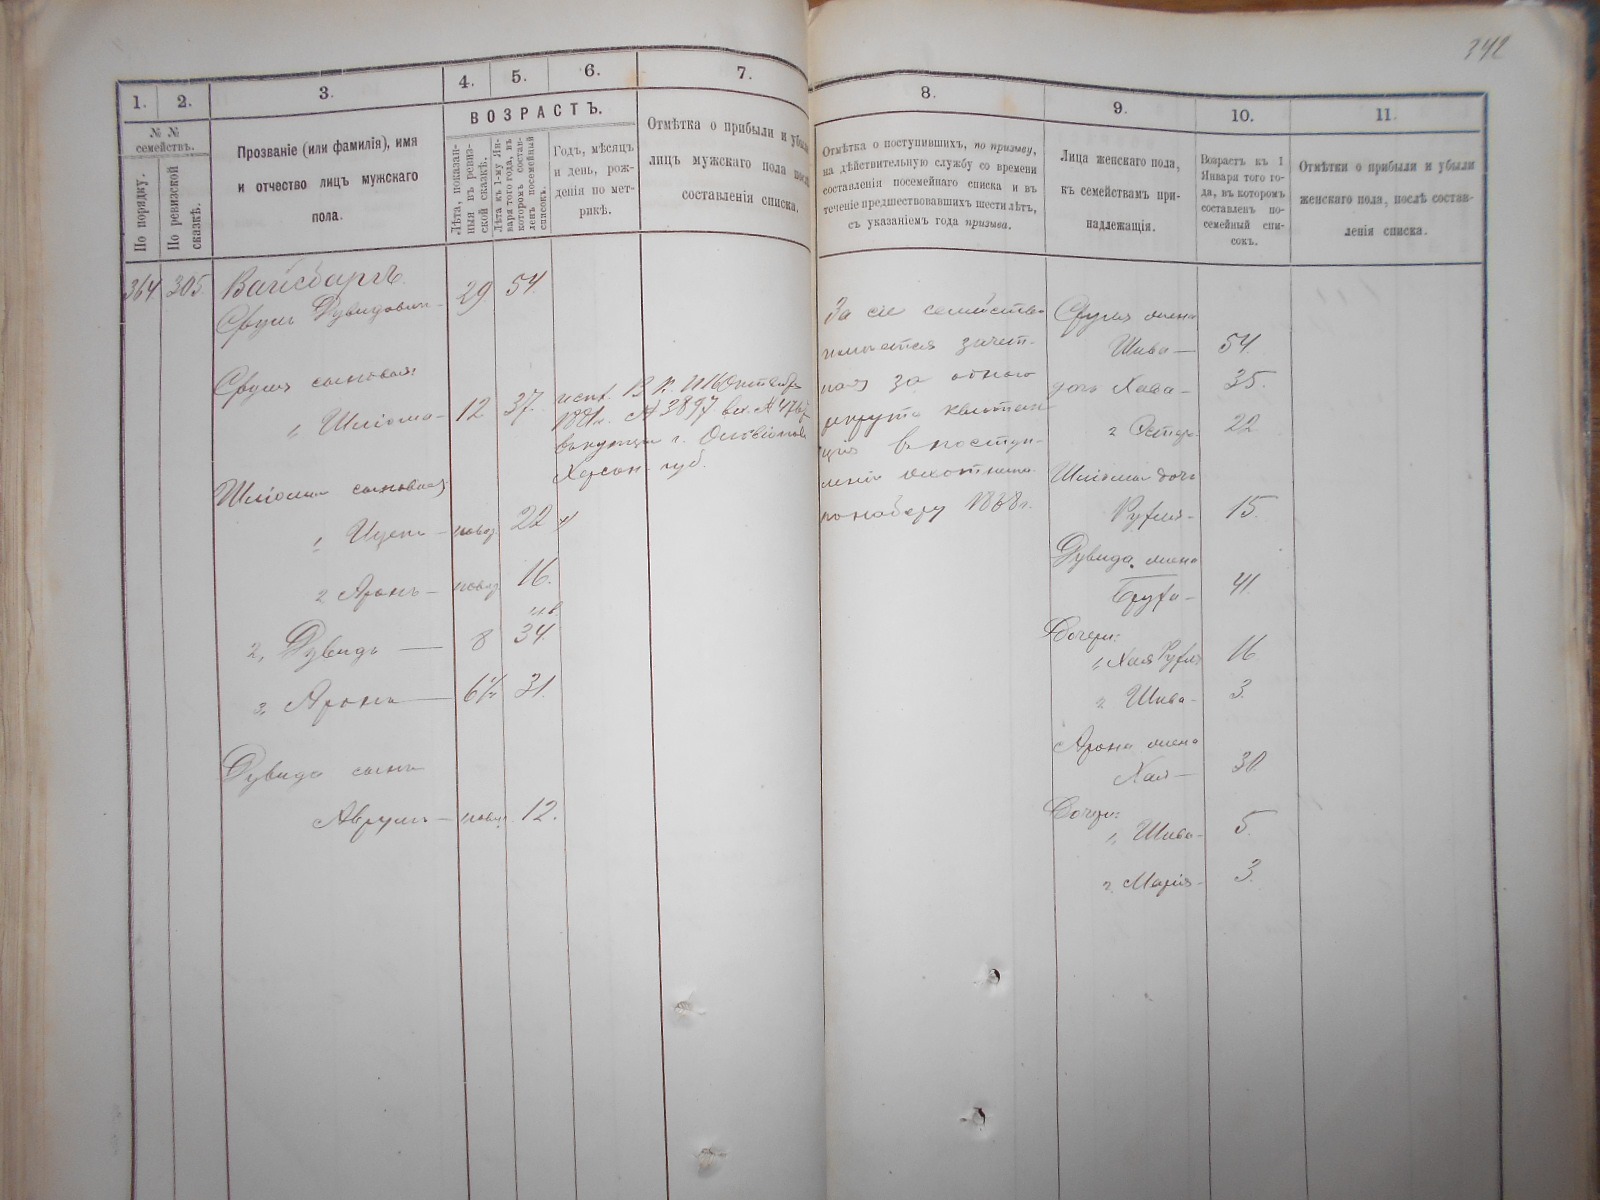 342
1.
2.
3.
4.
5.
6.
7.
8.
9.
10.
11.
№ №
семействъ.
По порядку.
По ревизской
сказкѣ.
Прозваніе (или фамилія), имя
и отчество лицъ мужскаго
пола.
ВОЗРАСТЪ.
Лѣта, показан-
ныя въ ревиз-
ской сказкѣ.
Лѣта къ 1-му Ян-
варя того года, въ
которомъ состав-
ленъ посемейный
списокъ.
Годъ, мѣсяцъ
и день, рож-
денія по мет-
рикѣ.
Отмѣтка о прибыли и убыли
лицъ мужскаго пола послѣ
составленія списка.
Отмѣтка о поступившихъ, по призыву,
на дѣйствительную службу со времени
составленія посемейнаго списка и въ
теченіе предшествовавшихъ шести лѣтъ,
съ указаніемъ года призыва.
Лица женскаго пола,
къ семействамъ при-
надлежащія.
Возрастъ къ 1
Января того го-
да, въ которомъ
составленъ по-
семейный спи-
сокъ.
Отмѣтки о прибыли и убыли
женскаго пола, послѣ состав-
ленія списка.
364 305. Вайсбаргъ
Сруль Дувидович- 29 54
Сруля сыновья:
1, Шліома- 12 37.
Шліомы сыновья:
1 Ицекъ - новор. 22
2 Аронъ - новор. 16.
2, Дувидъ 8 34
3, Аронъ 6½ 31.
Дувида сынъ
Аврумъ - новор. 12.
1881г. № 3897
Херсон. губ.
За сіе семейство
имѣется зачет-
ная за одного
рекрута квитан-
ція
по набору 1868г.
Сруля жена
Шива - 54.
дочь Хава - 35.
2 Эстеръ- 22
Шліомы дочь
Рухля- 15.
Дувида жена
Бруха - 41.
Дочери:
1, Хая Рухля 16
2 Шива- 3.
Арона жена
Хая - 30
Дочери:
1, Шива- 5.
2. Марія- 3.